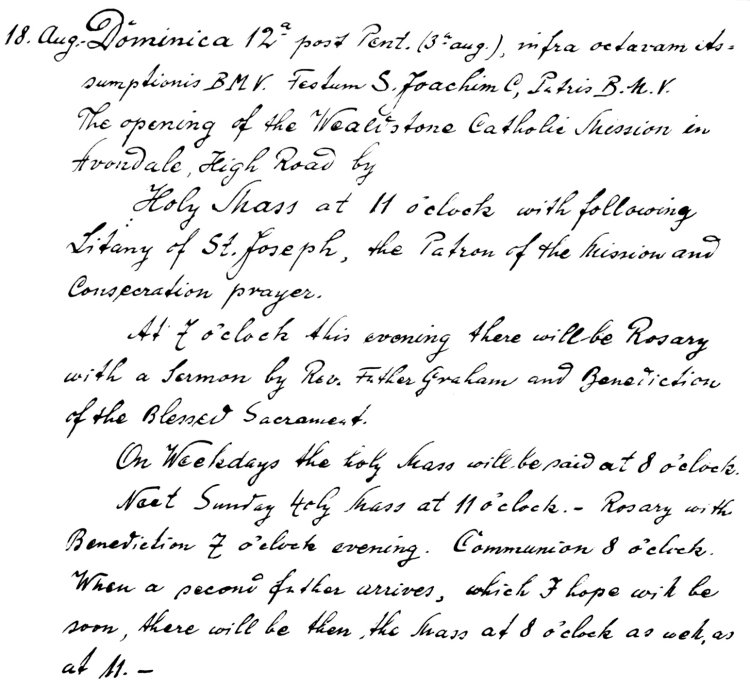 18. Aug. Dominica 12ª post Pent. (3ª aug.), infra octavam As=
sumptionis B.M.V. Festum S. Joachim C, Patris B.M.V.
The opening of the Wealdstone Catholic Mission in
Avondale, High Road by
Holy Mass at 11 o'clock with following
Litany of St. Joseph, the Patron of the Mission and
Consecration prayer.
At 7 o'clock this evening there will be Rosary
with a Sermon by Rev. Father Graham and Benediction
of the Blessed Sacrament.
On Weekdays the holy Mass will be said at 8 o'clock.
Next Sunday Holy Mass at 11 o'clock. – Rosary with
Benediction 7 o'clock evening. Communion 8 o'clock.
When a second father arrives, which I hope will be
soon, there will be then, the Mass at 8 o'clock as well, as
at 11. –